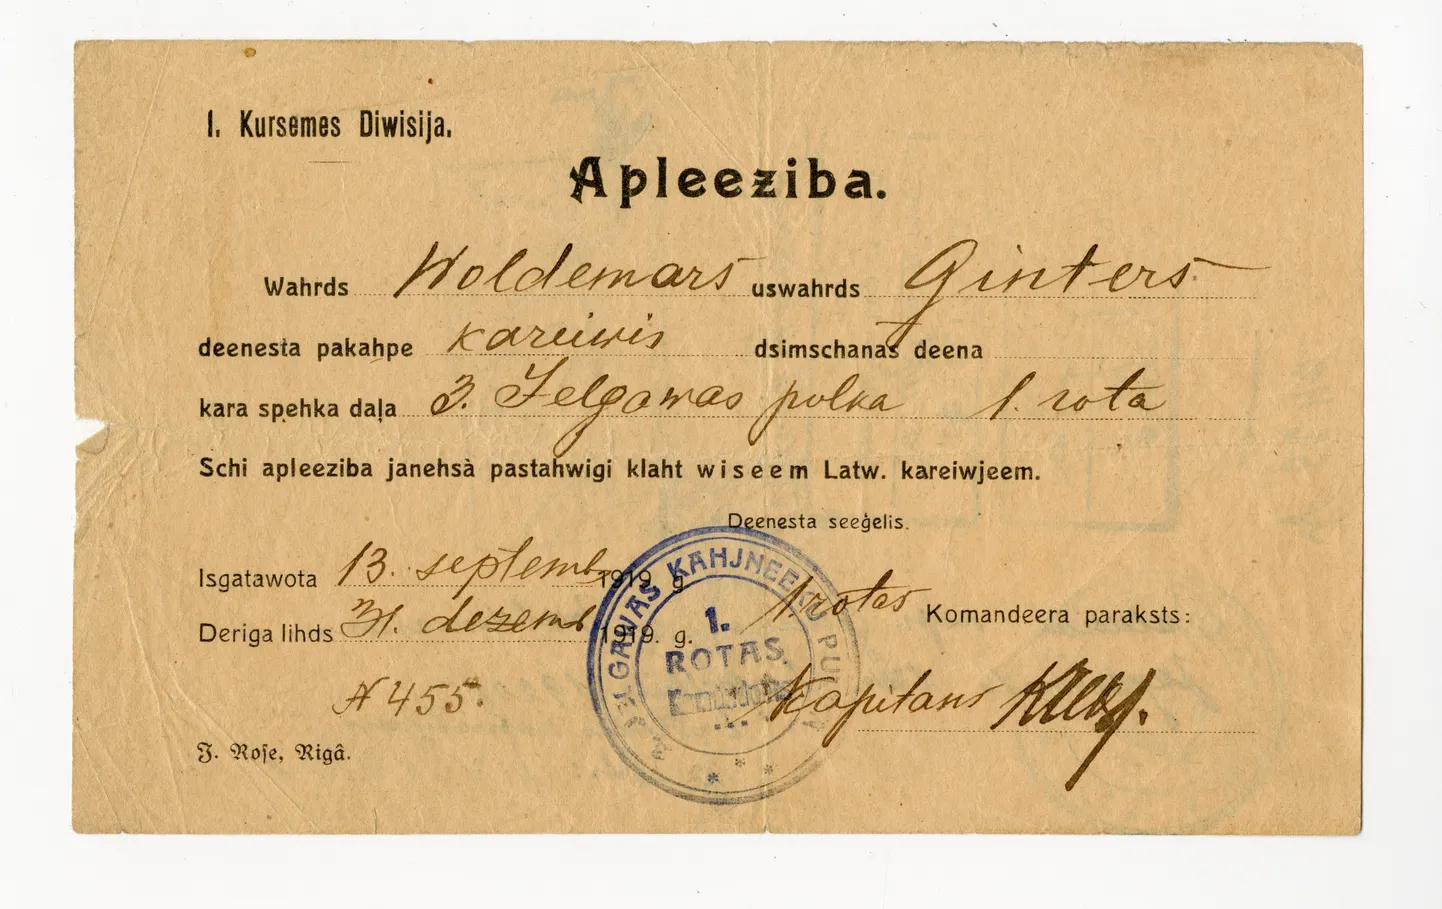 I. Kursemes Diwisija.
Apleeziba.
Wahrds Woldemars uswahrds Ginters
deenesta pakahpe kareiwis dsimschanas deena
kara spehka daļa 3. Jelgawas polka 1. rota
Schi apleeziba janehsà pastahwigi klaht wiseem Latw. kareiwjeem.
Deenesta seeģelis.
Isgatawota 13. septemb 1919. g.
Deriga lihds 31. dezemb 1919. g.
1. rotas Komandeera paraksts:
JELGAWAS KAHJNEEKU
1.
ROTAS
Kapitans
N 455.
J. Rose, Rigâ.